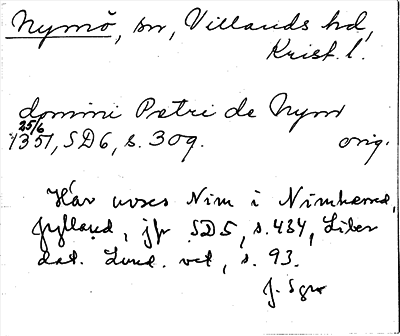 Nymö, sn, Villands hd,
Krist. l.
domini Petri de Nym
25/6
1351, SD6, s. 309. orig.
Här avses Nim i Nimhærred,
Jylland, jfr SD5, s. 434, Liber
dat. Lund. vet, s. 93.